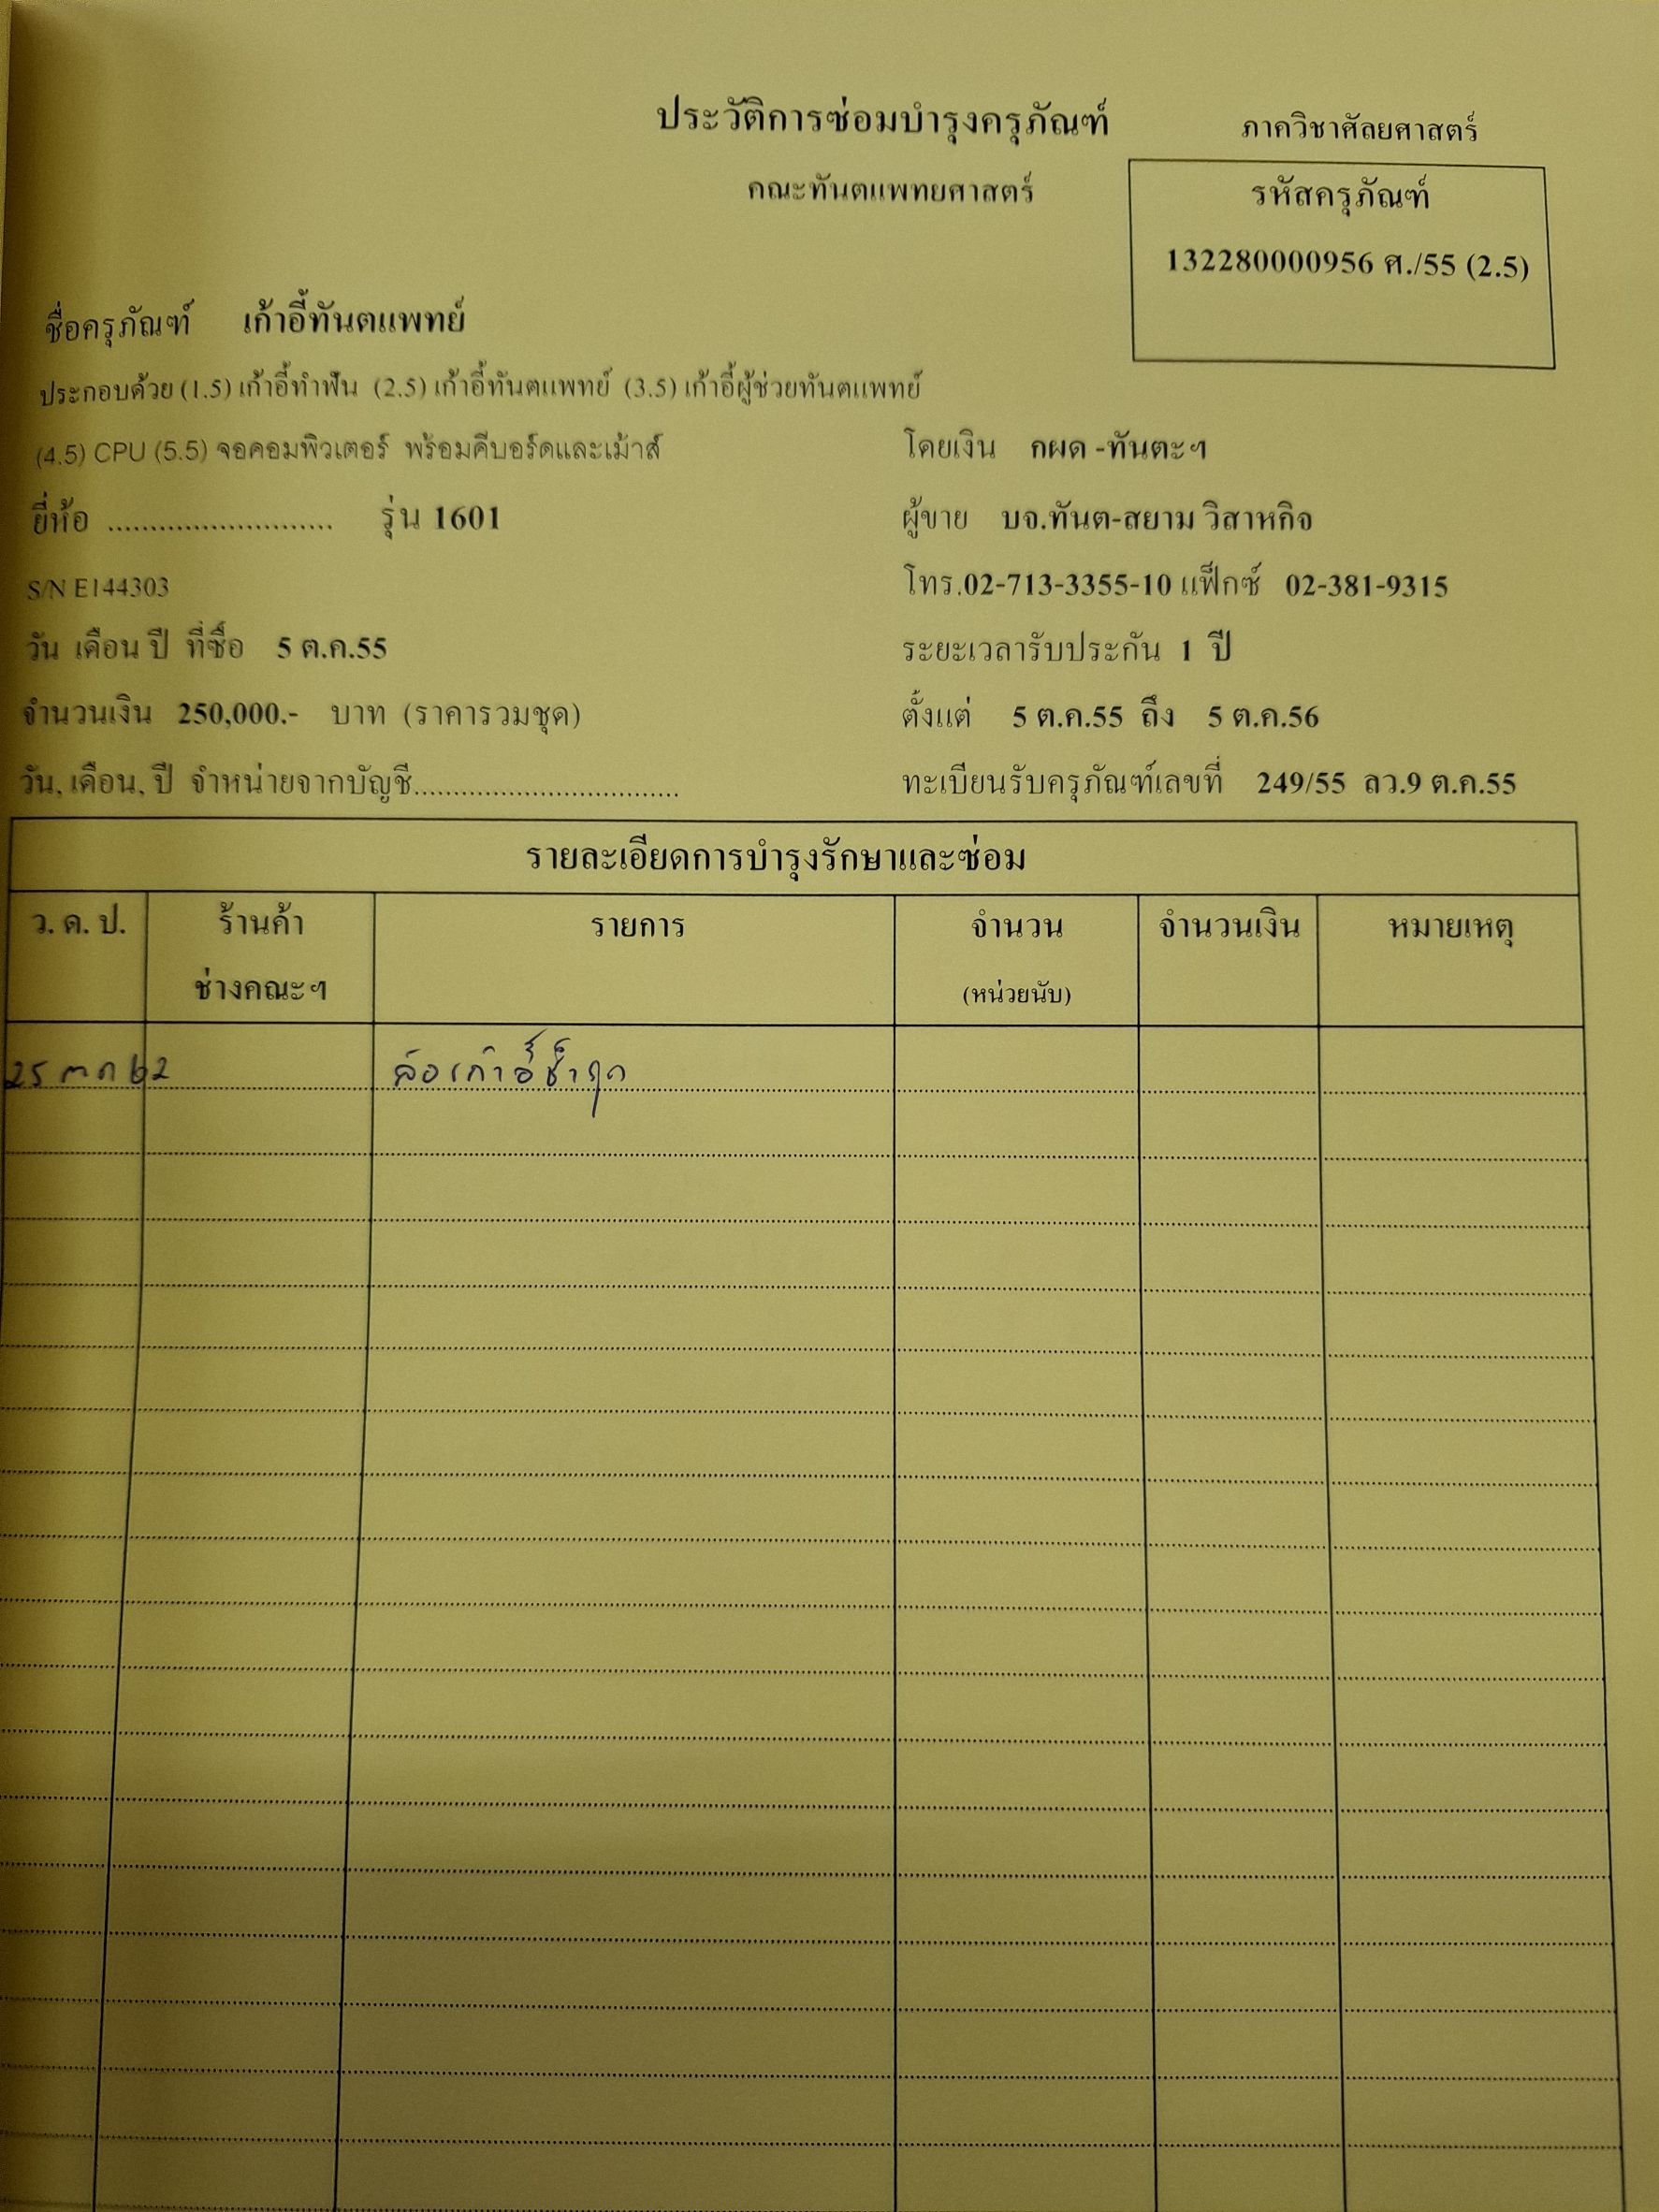 ประวัติการซ่อมบำรุงครุภัณฑ์
ภาควิชาศัลยศาสตร์
คณะทันตแพทยศาสตร์
รหัสครุภัณฑ์
132280000956 ศ./55 (2.5)
ชื่อครุภัณฑ์ เก้าอี้ทันตแพทย์
ประกอบด้วย (1.5) เก้าอี้ทำฟัน (2.5) เก้าอี้ทันตแพทย์ (3.5) เก้าอี้ผู้ช่วยทันตแพทย์
(4.5) CPU (5.5) จอคอมพิวเตอร์ พร้อมคีบอร์ดและเม้าส์ โดยเงิน กผด -ทันตะฯ
ยี่ห้อ .......................... รุ่น 1601 ผู้ขาย บจ.ทันต-สยาม วิสาหกิจ
S/N E144303 โทร.02-713-3355-10 แฟ็กซ์ 02-381-9315
วัน เดือน ปี ที่ซื้อ 5 ต.ค.55 ระยะเวลารับประกัน 1 ปี
จำนวนเงิน 250,000.- บาท (ราคารวมชุด) ตั้งแต่ 5 ต.ค.55 ถึง 5 ต.ค.56
วัน, เดือน, ปี จำหน่ายจากบัญชี................................. ทะเบียนรับครุภัณฑ์เลขที่ 249/55 ลว.9 ต.ค.55
รายละเอียดการบำรุงรักษาและซ่อม
ว. ด. ป. ร้านค้า รายการ จำนวน จำนวนเงิน หมายเหตุ
ช่างคณะฯ (หน่วยนับ)
25 ตค 62 ล้อเก้าอี้ชำรุด